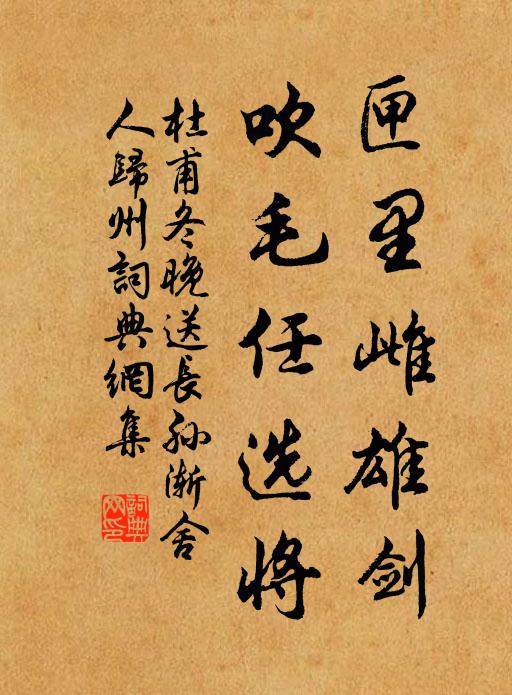 匣里雌雄剑
吹毛任选将
杜甫冬晚送长孙渐舍
人歸州詞典網集
詞典
网印